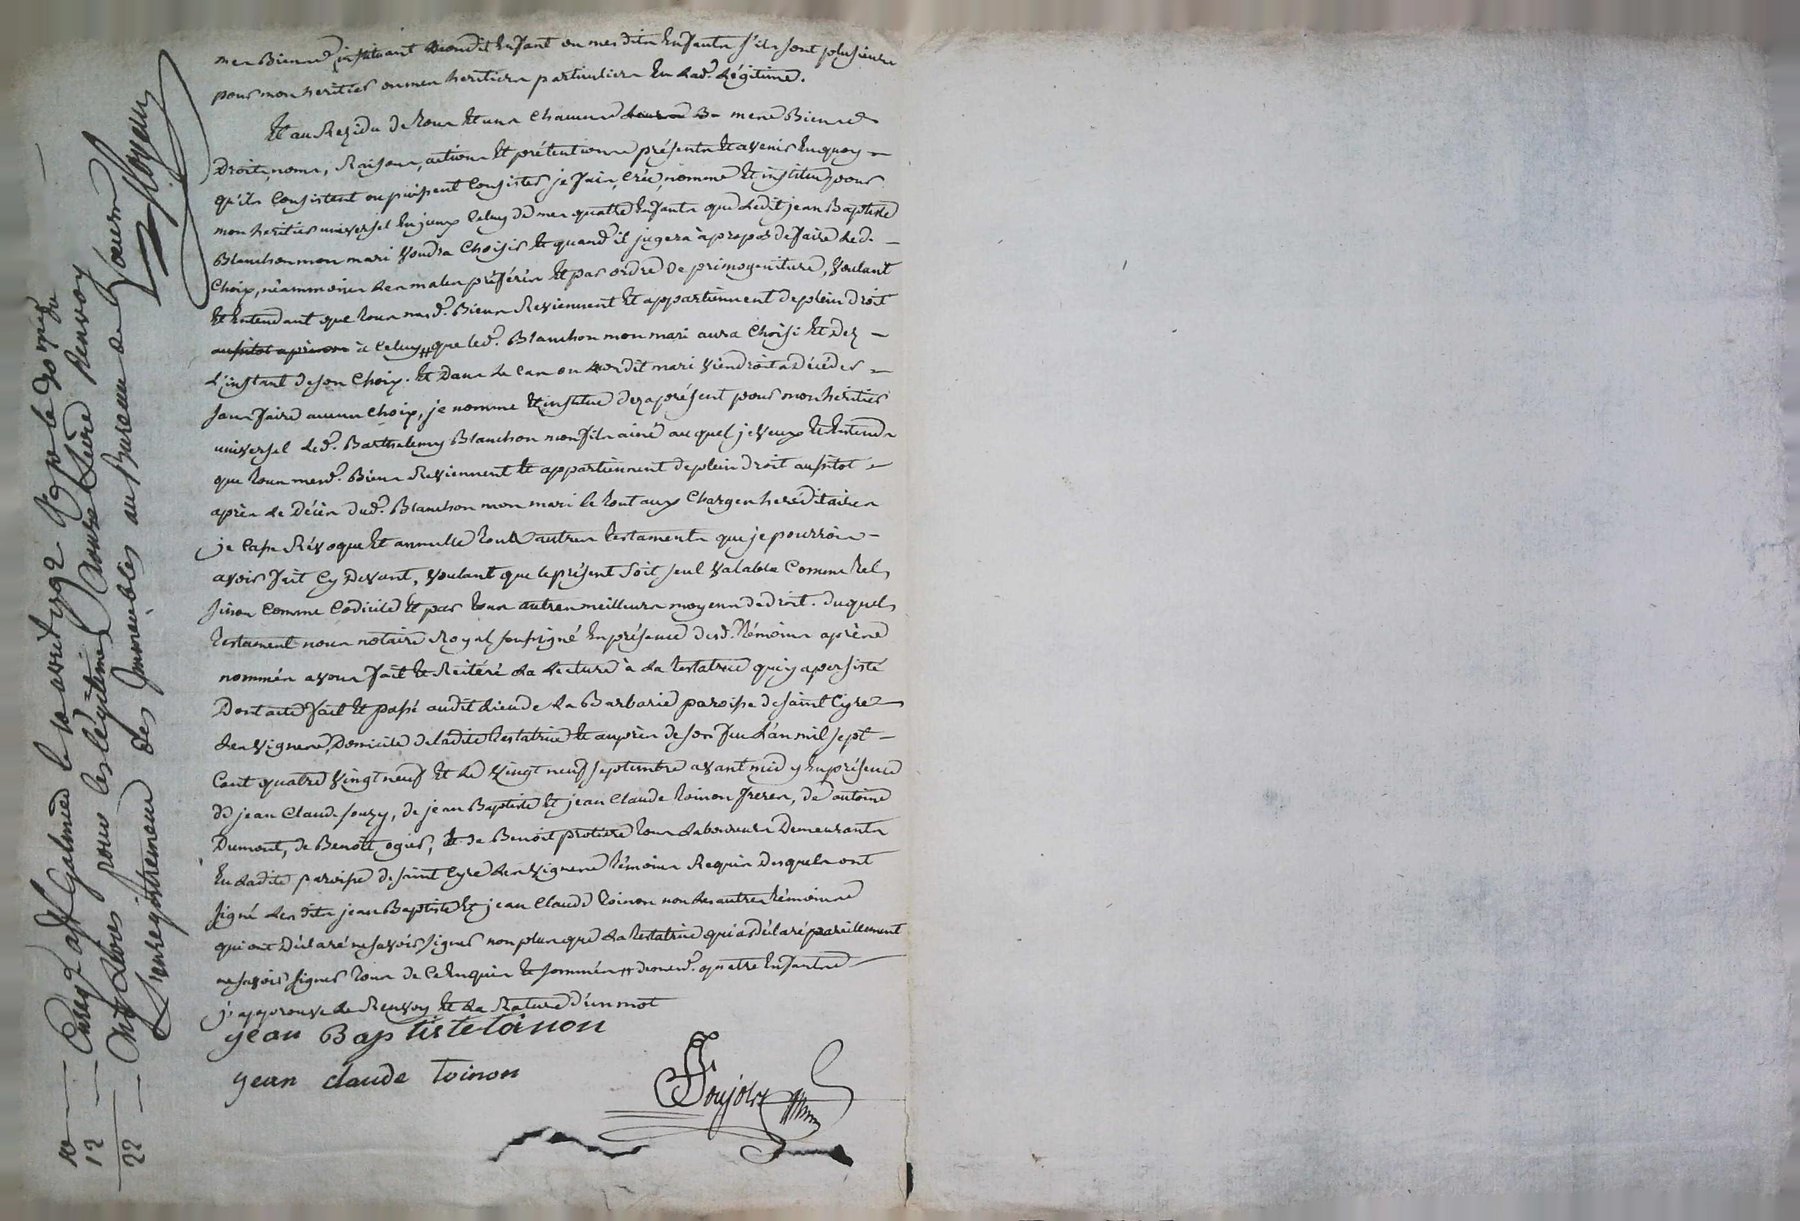 mes Biens, instituant mondit Enfant ou mesdits Enfants s'ils sont plusieurs
pour mon heritier ou mes heritiers particuliers En lad.e Légitime.
Et au Rezidu de tous Et uns chacuns mes Biens
Droits, noms, Raisons, actions Et prétentions présents Et avenir Enquoy
qu'ils Consistent ou puissent Consister je fais, crée, nomme Et institue pour
mon heritier universel Celuy de mes quatre Enfants que Ledit jean Baptiste
Blanchon mon mari voudra Choisir Et quand il jugera àpropos de faire Led.
Choix, néammoins les males préférés Et par ordre de primogeniture, voulant
Et Entendant que tous mesd. Biens Reviennent Et appartiennent deplein droit
aussitot après à Celuy que led. Blanchon mon mari aura Choisi Et Dez
L'instant de son Choix. Et Dans le Cas ou mondit mari viendroit a Décéder
sans faire aucun choix, je nomme Et institue dez aprésent pour mon heritier
universel Led. Barthelemy Blanchon mon fils ainé auquel je veux Et Entends
que tous mesd. Biens Reviennent Et appartiennent deplein droit aussitot
après le Décès dud. Blanchon mon mari le tout aux Charges hereditaires
je Casse Révoque Et annulle touts autres testaments que je pourrois
avoir fait Cy Devant, voulant que le présent soit seul valable Comme tel,
sinon Comme Codicile Et par tous autres meilleurs moyens de droit. duquel
testament nous notaire Royal soussigné En présence desd. témoins après
nommés avons fait Et Réitéré La Lecture à La testatrice qui y a persisté
Dont acte fait Et passé audit Lieu de La Barbarie paroisse de saint Cyre
Les vignes, Domicile de Ladite testatrice Et auprès de son feu L'an mil sept
Cent quatre vingt neuf Et Le vingt neuf septembre avant midy En présence
de jean Claude souzy, de jean Baptiste Et jean Claude toinon freres, de antoine
Dumont, de Benoît ogier, Et de Benoît protiere tous Laboureurs Demeurants
En Ladite paroisse de saint Cyre Les vignes témoins Requis Desquels ont
signé Lesdits jean Baptiste Et jean Claude toinon non Les autres témoins
qui ont Déclaré ne savoir signer non plus que La testatrice qui a déclaré pareillement
ne savoir signer tous de Ce Enquis Et sommés # de mesd. quatre Enfants
j'approuve Le Renvoy Et La Rature d'un mot
jean Baptiste toinon
jean claude toinon
Soujolz
Enreg. a St Galmier le 10 avril 1792
pour les légitimes
L'enregistrement des Immeubles au Bureau de
10
12
22